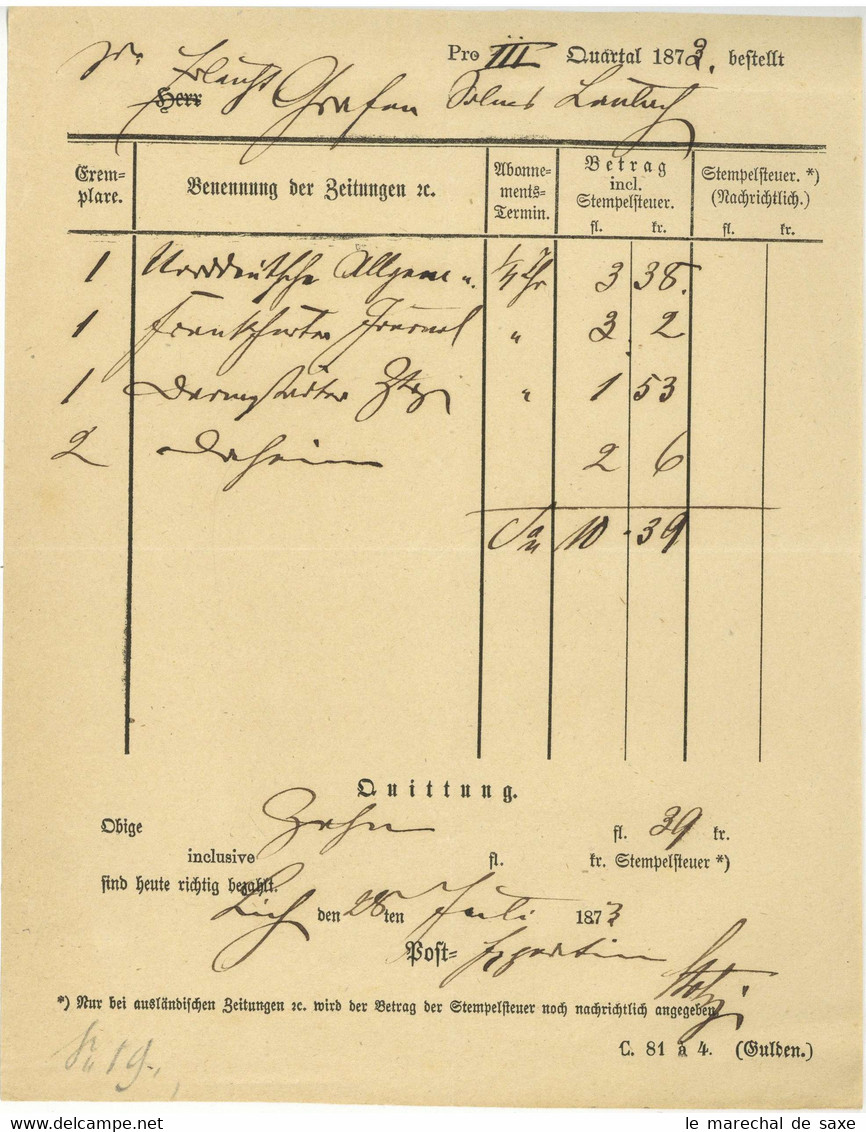 Pro III Quartal 1873. bestellt
Sr. Erlaucht
Herr Grafen Solms Laubach
Exem-
plare. Benennung der Zeitungen ꝛc. Abonne-
ments-
Termin. Betrag
incl.
Stempelsteuer. Stempelsteuer. *)
(Nachrichtlich.)
fl. kr. fl. kr.
1 Norddeutsche Allgem 1/4 Jhr 3 38.
1 Frankfurter Journal " 3 2
1 Darmstädter Ztg " 1 53
2 Daheim 2 6
Sa 10 . 39
Quittung.
Obige Zehn fl. 39 kr.
inclusive fl. kr. Stempelsteuer *)
sind heute richtig bezahlt.
Lich den 28ten Juli 1873
Post= Expedition
*) Nur bei ausländischen Zeitungen ꝛc. wird der Betrag der Stempelsteuer noch nachrichtlich angegeben
C. 81 à 4. (Gulden.)
19.
le marechal de saxe